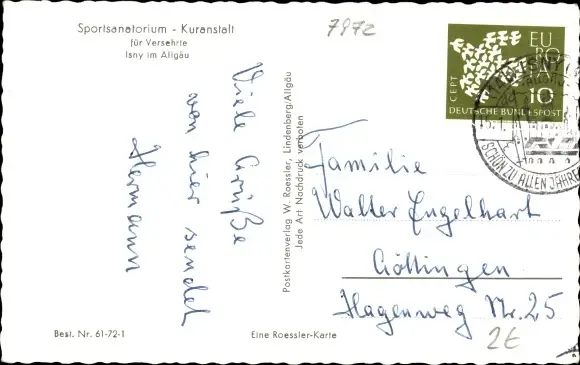 Sportsanatorium - Kuranstalt
für Versehrte
Isny im Allgäu
7972
Viele Grüße
von hier sendet
Hermann
Postkartenverlag W. Roessler, Lindenberg/Allgäu
Jede Art Nachdruck verboten
EU
RO
PA
10
CEPT
DEUTSCHE BUNDESPOST
SCHÖN ZU ALLEN JAHRE
Familie
Walter Engelhart
Göttingen
Hagenweg Nr. 25
2€
Best. Nr. 61-72-1
Eine Roessler-Karte